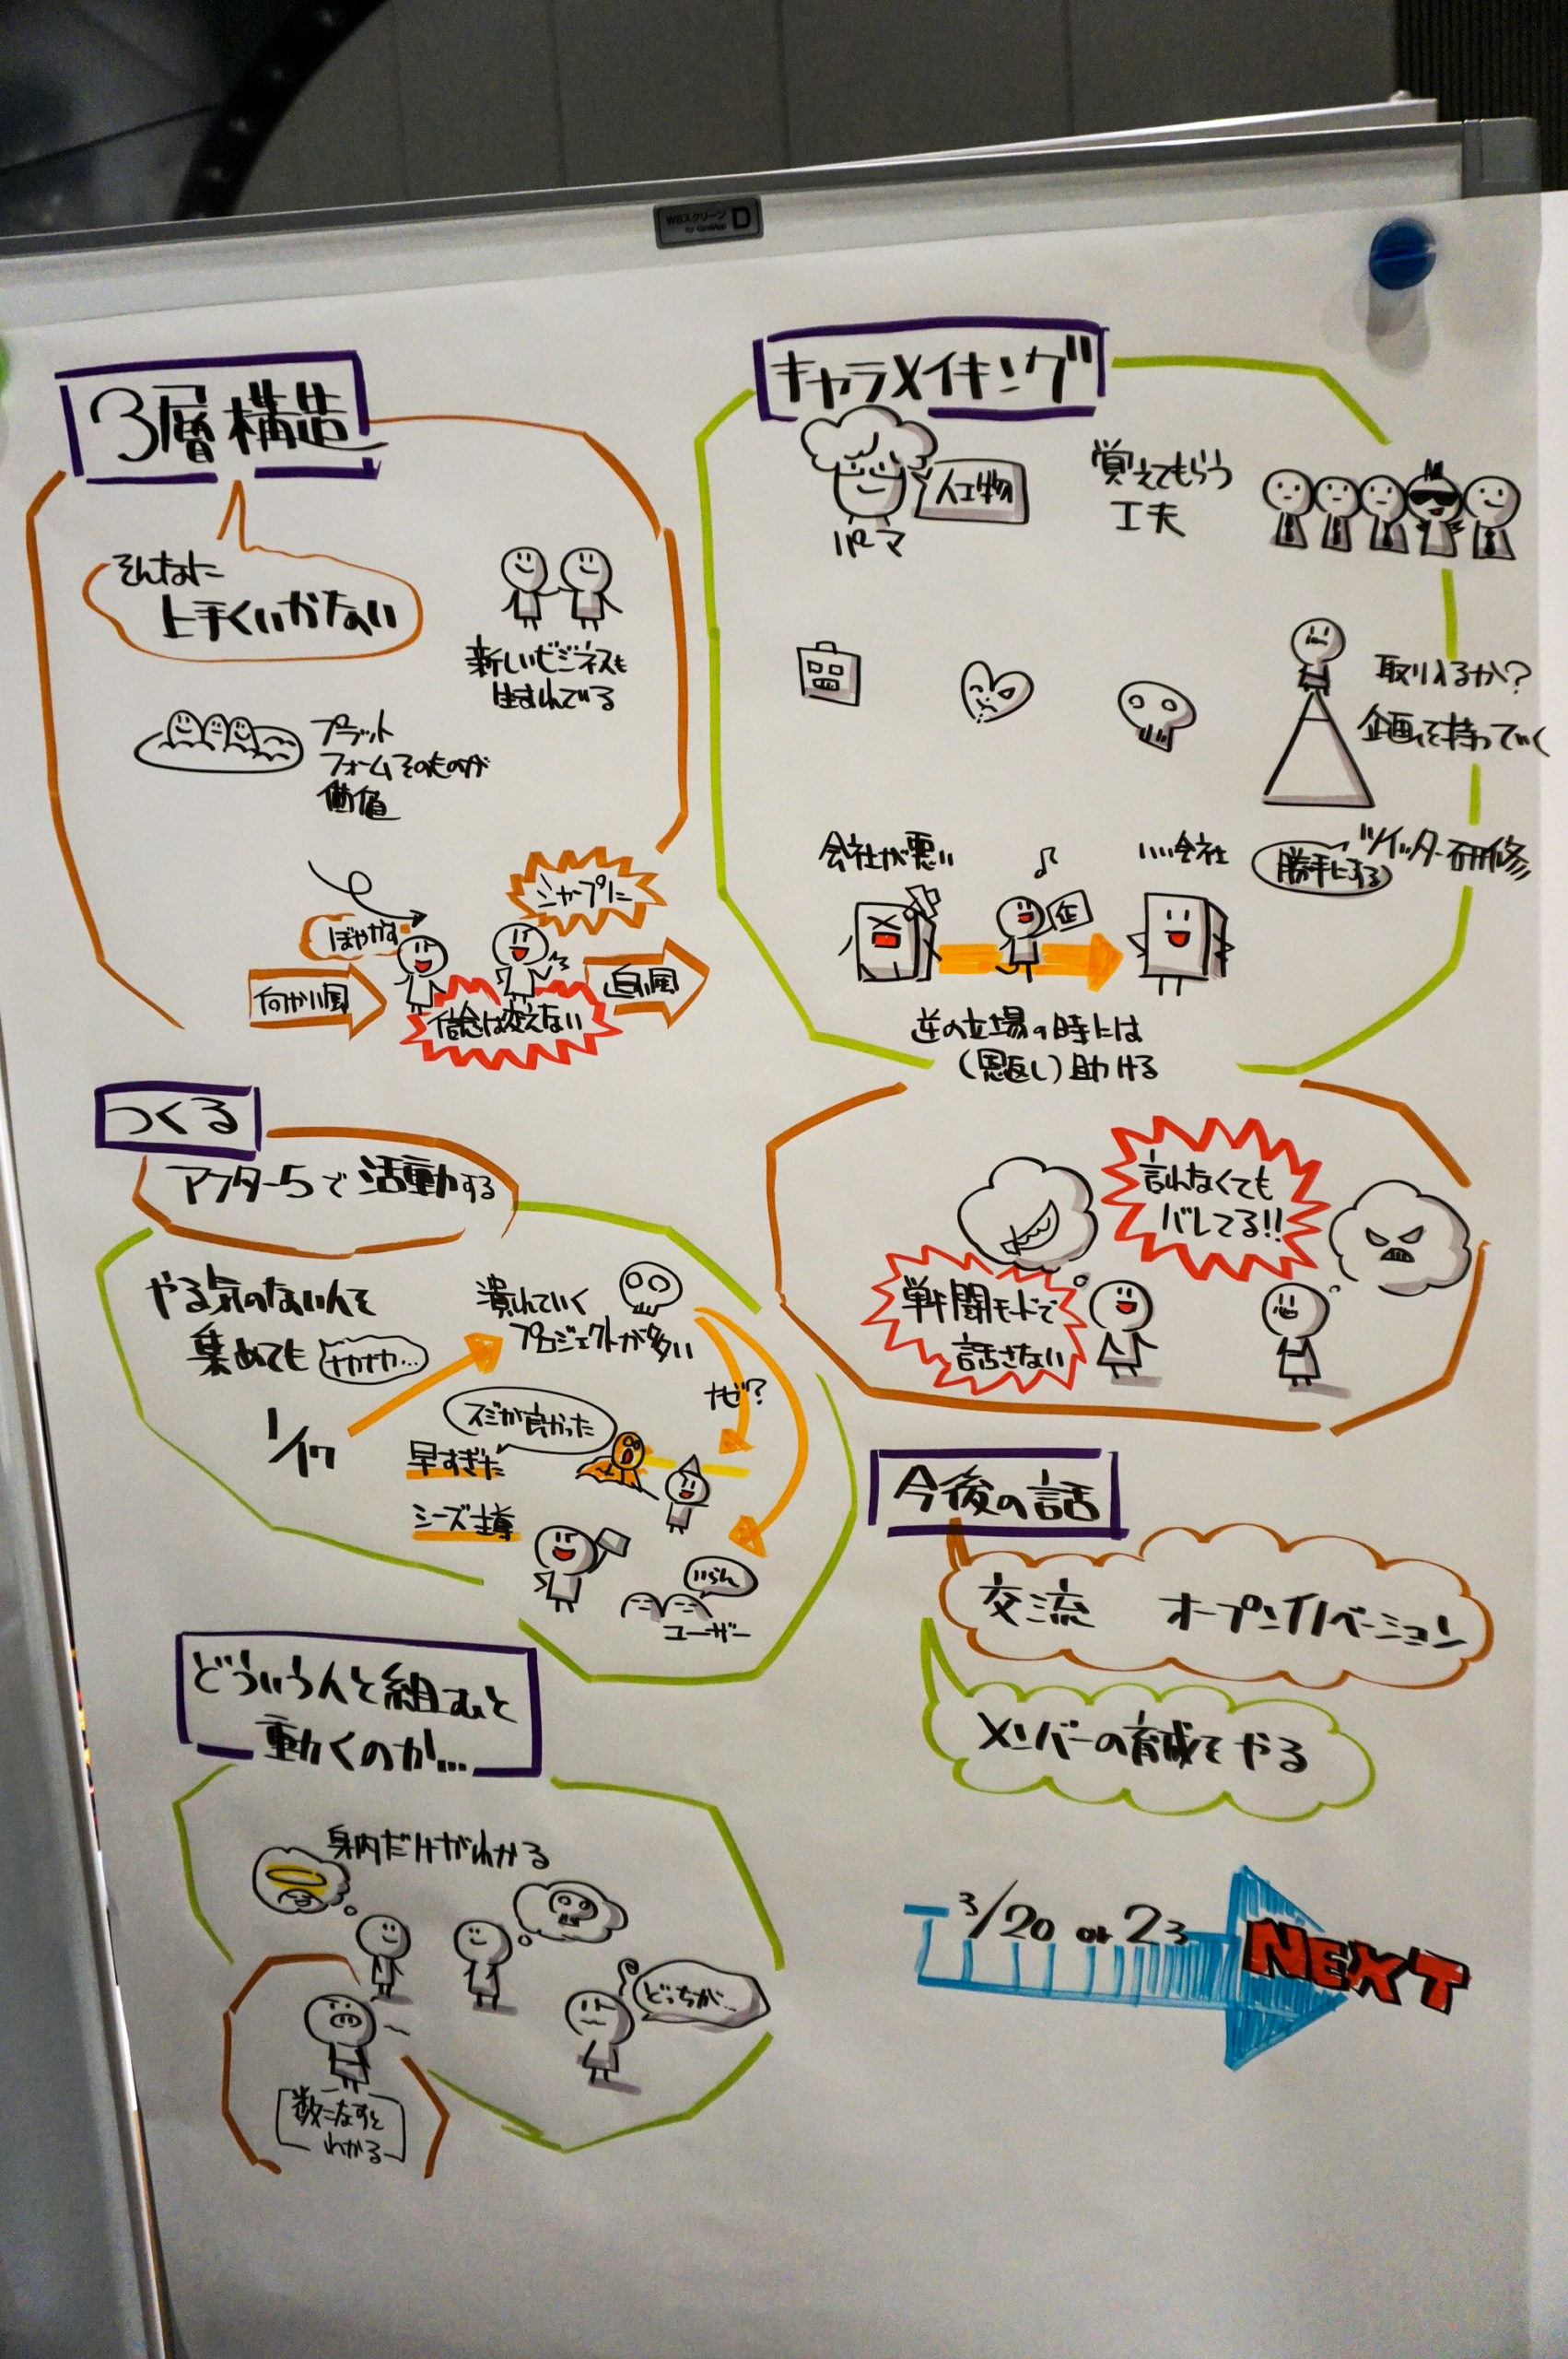 WBスクリーン D
3層構造
そんなに
上手くいかない
新しいビジネスも
生まれている
プラット
フォームそのものが
価値
ぼやかす
シャープに
向かい風
信念は変えない
追い風
キャラメイキング
人工物
パーマ
覚えてもらう
工夫
取り入るか?
企画を持っていく
ツイッター研修
勝手にする
会社が悪い
企
いい会社
逆の立場の時には
(恩返し)助ける
言わなくても
バレてる!!
戦闘モードで
話さない
つくる
アフター5で活動する
やる気のない人を
集めても
ナカナカ...
1/17
潰れていく
プロジェクトが多い
ナゼ?
スジが良かった
早すぎた
シーズ主導
いらん
ユーザー
どういう人と組むと
動くのか...
身内だけがわかる
どっちが...
数こなすと
わかる
今後の話
交流 オープンイノベーション
メンバーの育成をやる
3/20 or 23
NEXT